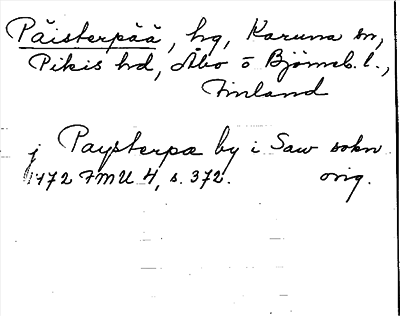 Päisterpää, hg, Karuna sn,
Pikis hd, Åbo o Björneb. l.,
Finland
j Paysterpæ by i Saw sokn
1472 FMU 4, s. 372. orig.